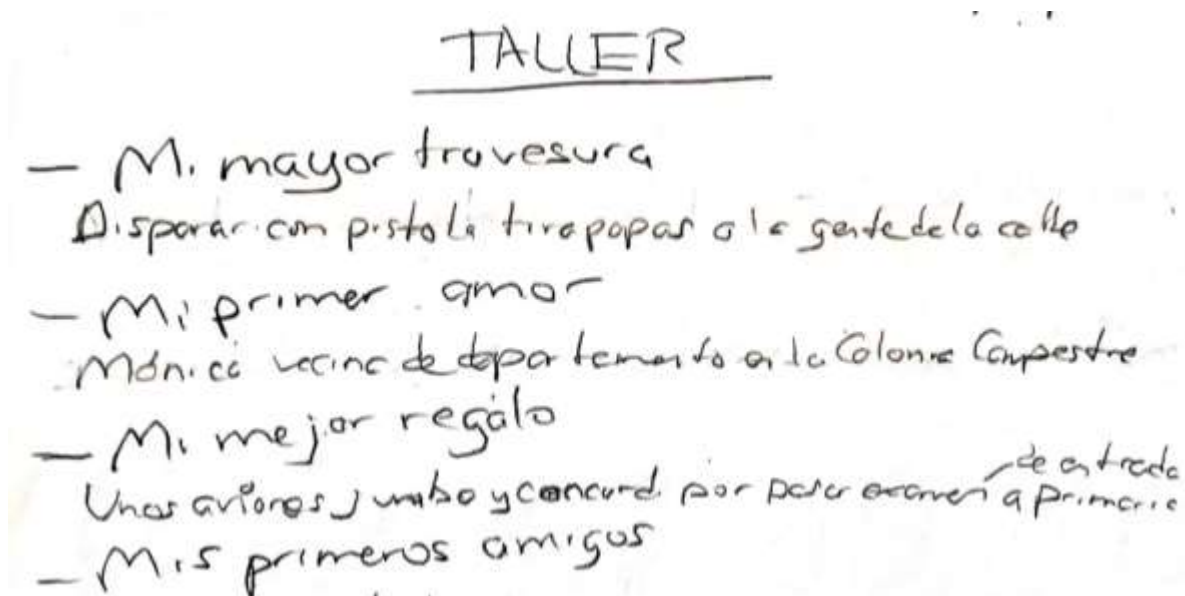 TALLER
— Mi mayor travesura
Disparar con pistola tirapapas a la gente de la calle
— Mi primer amor
Mónica vecina de departamento en la Colonia Campestre
— Mi mejor regalo
Unos aviones jumbo y concord por pasar examen de entrada a primaria
— Mis primeros amigos